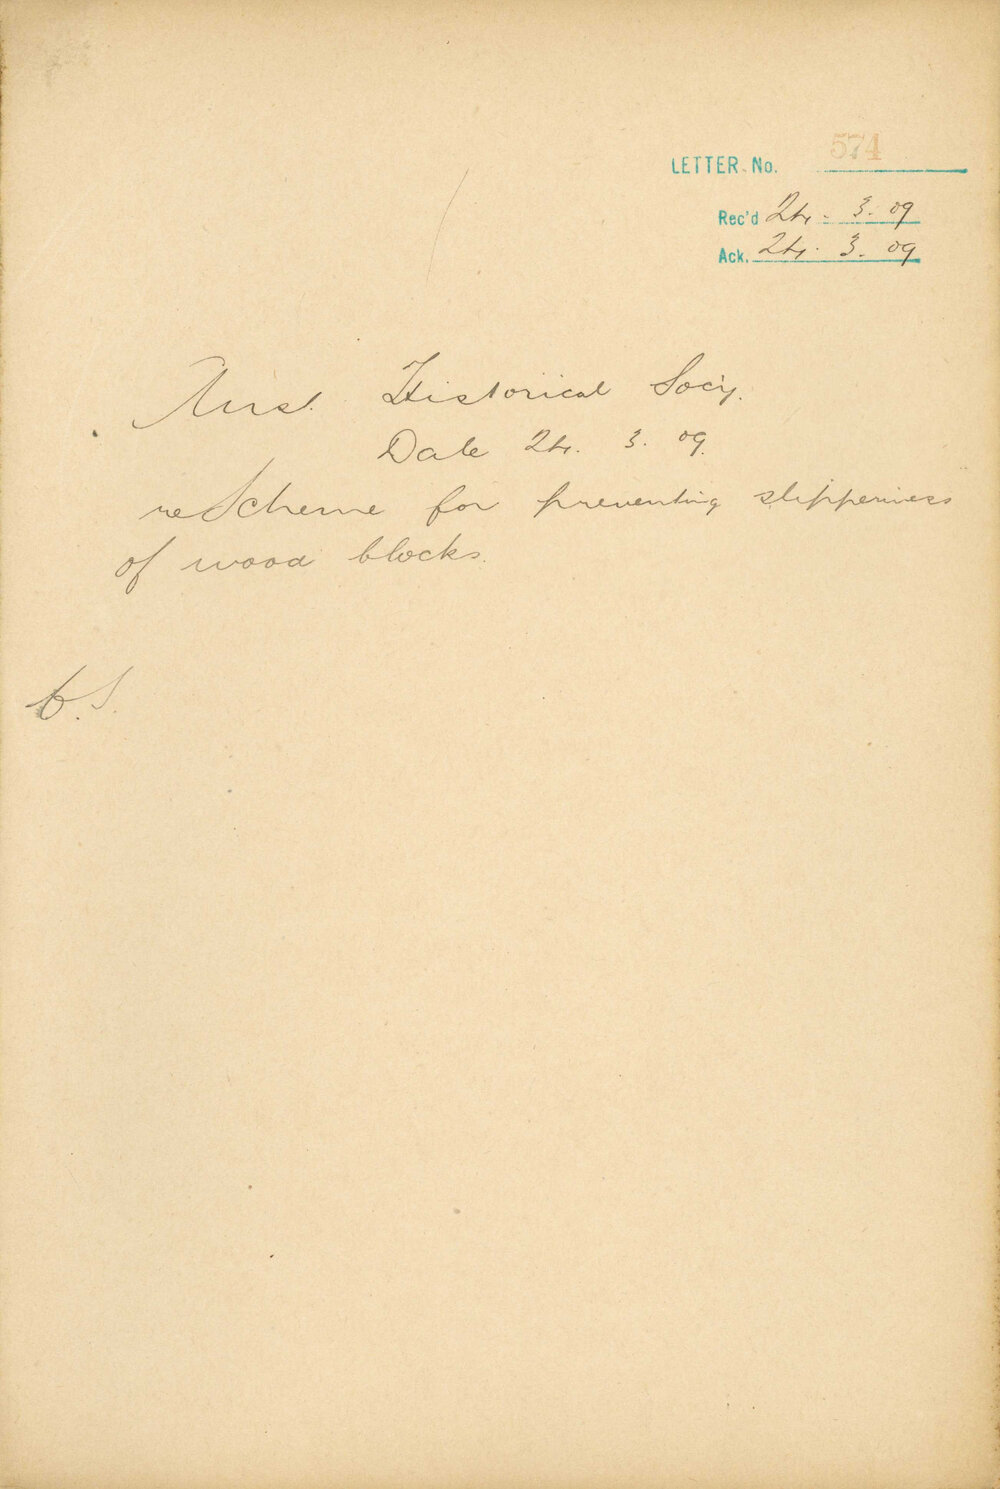 LETTER No. 574
Rec'd 24. 3. 09
Ack. 24. 3. 09
Aust. Historical Soc'y.
Date 24. 3. 09.
re Scheme for preventing slipperiness
of wood blocks.
C.S.